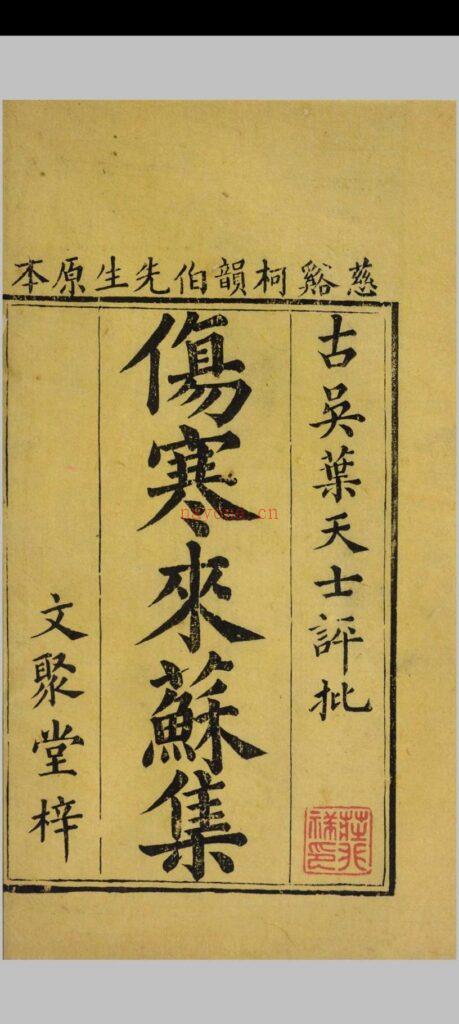 慈谿柯韻伯先生原本
古吳葉天士評批
傷寒來蘇集
文聚堂梓